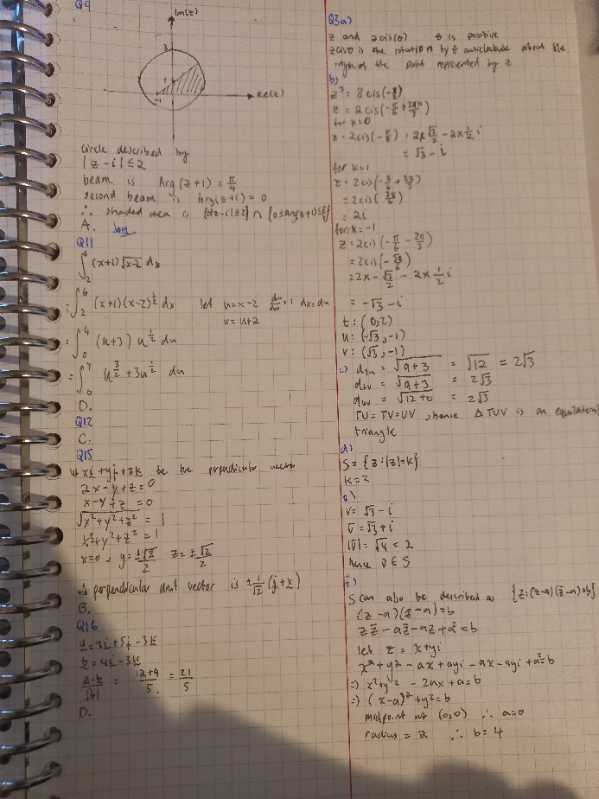 Q9
Im(z)
Re(z)
circle described by
|z-i|≤2
beam is Arg(z+1) = π/4
second beam is Arg(z+1) = 0
∴ shaded area is
A.
Q11
∫₂⁶ (x+1)√x-2 dx
= ∫₂⁶ (x+1)(x-2)^½ dx let u=x-2 du/dx=1 dx=du
x=u+2
= ∫₀⁴ (u+3) u^½ du
= ∫₀⁴ u^(3/2) + 3u^½ du
D.
Q12
C.
Q15
xi + yj + zk be the perpendicular vector
2x-y+z=0
x-y+z=0
√x²+y²+z² = 1
x²+y²+z² = 1
x=0, y=±√2/2 z=±√2/2
∴ perpendicular unit vector is ±1/√2 (j+k)
B.
Q16
a=3i+5j-3k
b=4i-3k
a·b/|b| = 12+9/5 = 21/5
D.
Q3a)
z and 2cis(θ) θ is positive
zcisθ is the rotation of z anticlockwise about the
origin of the point represented by z
b)
z³ = 8cis(-π/2)
z = 2cis(-π/6 + 2kπ/3)
for k=0
z = 2cis(-π/6) = 2×√3/2 - 2×½i
= √3 - i
for k=1
z = 2cis(-π/6 + 2π/3)
= 2i
for k=-1
z = 2cis(-π/6 - 2π/3)
= 2x-√3/2 - 2×½i
= -√3 - i
t: (0,2)
u: (-√3,-1)
v: (√3,-1)
=√9+3 = √12 = 2√3
= √9+3 = 2√3
= √12+0 = 2√3
TU=TV=UV, hence ΔTUV is an equilateral
triangle
d)
S={z:|z|=k}
k=2
v=√3-i
v̄=√3+i
|v̄|=√4=2
hence v̄∈S
S can also be described as {z:(z-a)(z̄-a)=b}
(z-a)(z̄-a)=b
zz̄-az̄-az+a²=b
let z=x+yi
x²+y²-ax+ayi-ax-ayi+a²=b
=) x²+y²-2ax+a=b
=) (x-a)²+y²=b
midpoint at (0,0) ∴ a=0
radius=2 ∴ b=4